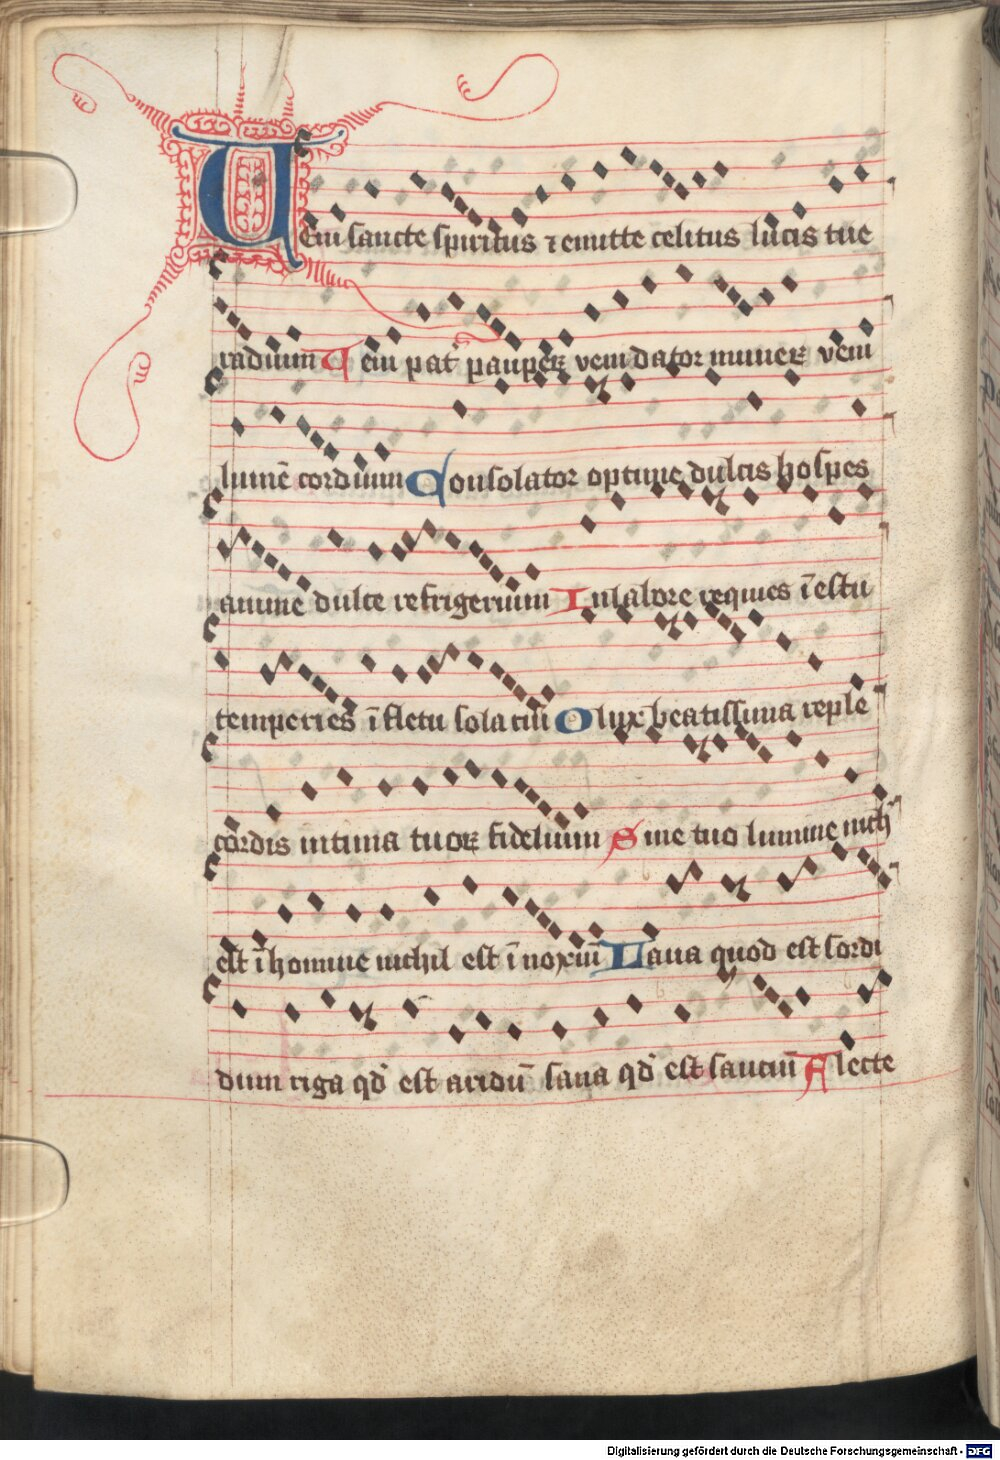 Veni sancte spiritus ⁊ emitte celitus lucis tue
radium Veni pat᷑ pauperꝝ veni dator munerꝝ veni
lumē cordium Consolator optime dulcis hospes
anime dulce refrigerium In labore requies ī estu
temperies ī fletu solaciū O lux beatissima reple
cordis intima tuorꝝ fidelium Sine tuo lumine nich
est ī homine nichil est ī noxiū Laua quod est sordi
dum riga qď est aridū sana qď est sauciū Flecte
Digitalisierung gefördert durch die Deutsche Forschungsgemeinschaft - DFG